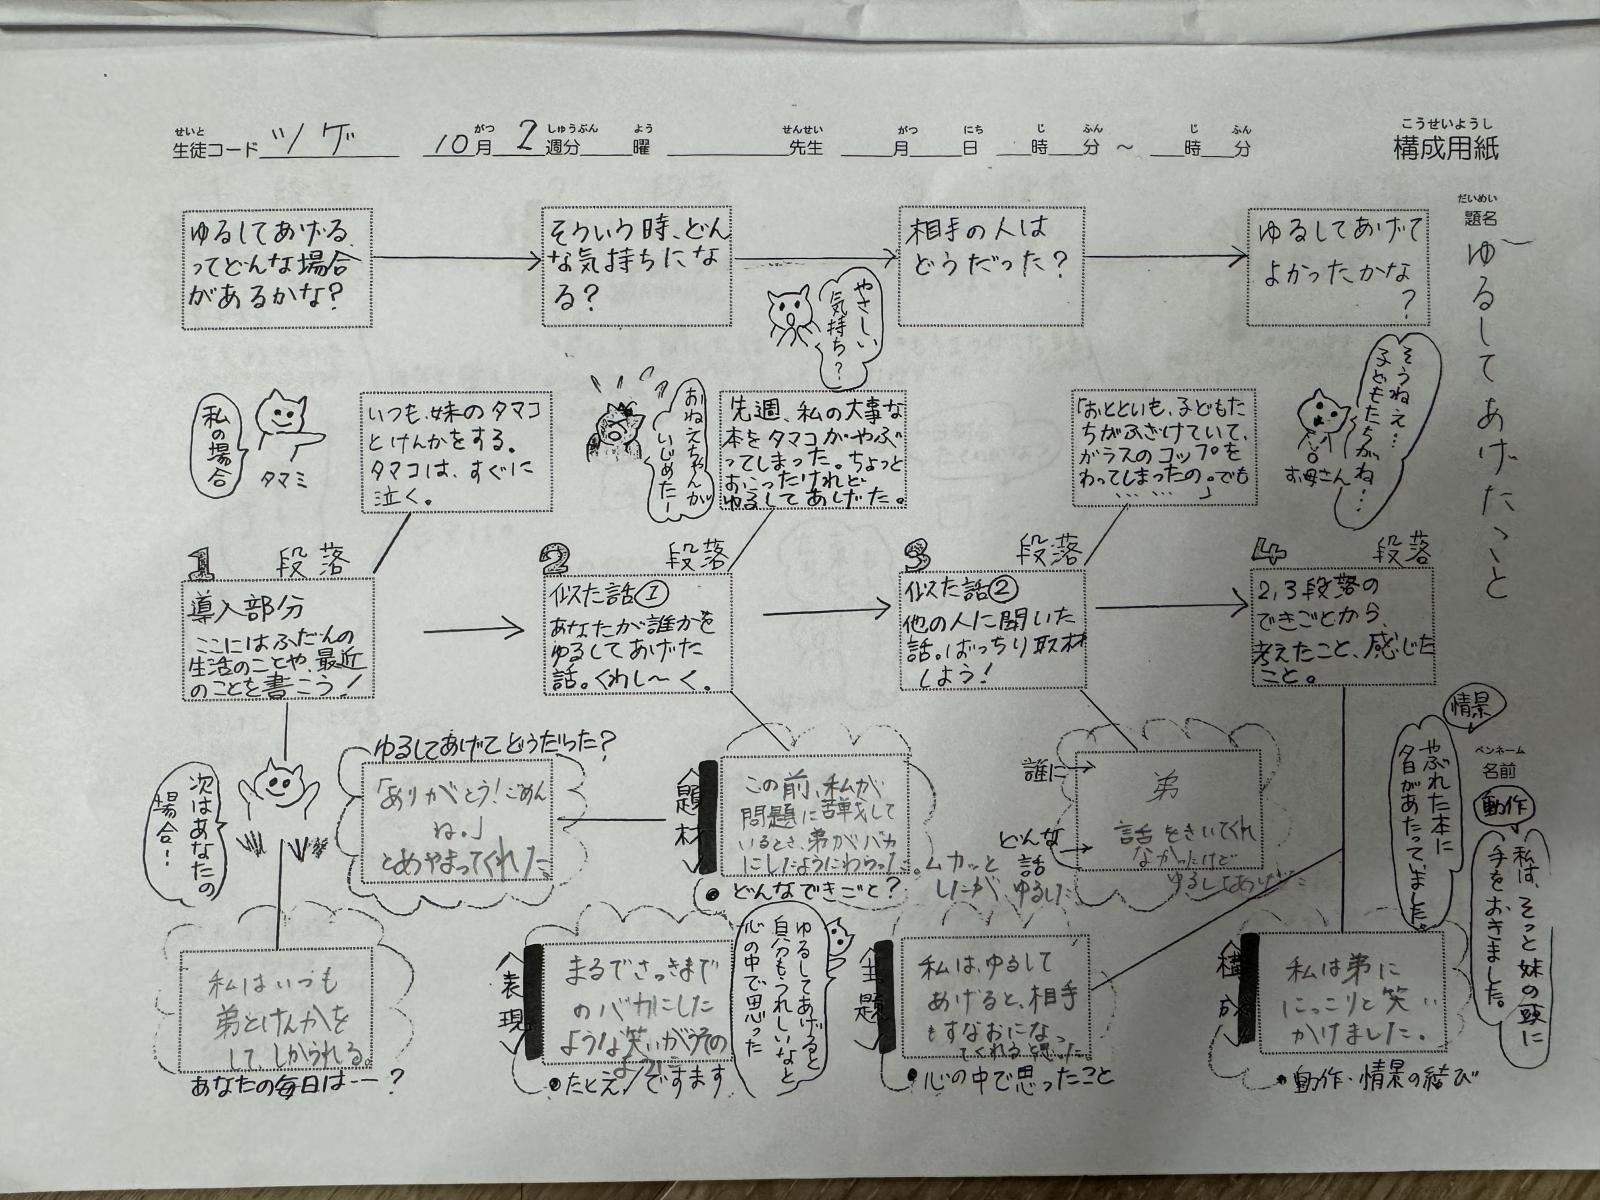 せいと
生徒コード ツゲ
10月 がつ
2週分 しゅうぶん
曜 よう
先生 せんせい
月 がつ
日 にち
時 じ
分 ふん
～
時 じ
分 ふん
こうせいようし
構成用紙
だいめい
題名
ゆるしてあげたこと
ゆるしてあげる
ってどんな場合
があるかな?
そういう時、どん
な気持ちにな
る?
相手の人は
どうだった?
ゆるしてあげて
よかったかな
?
私の場合
タマミ
いつも、妹のタマコ
とけんかをする。
タマコは、すぐに
泣く。
おねえちゃんが
いじめたー
やさしい
気持ち?
先週、私の大事な
本をタマコがやぶ
ってしまった。ちょっと
おこったけれど
ゆるしてあげた。
「おとといも、子どもた
ちがふざけていて、
ガラスのコップを
わってしまったの。でも
………」
お母さん
そうねえ…
子どもたちがね…
1 段落
導入部分
ここにはふだんの
生活のことや、最近
のことを書こう!
2 段落
似た話①
あなたが誰かを
ゆるしてあげた
話。くわし〜く。
3 段落
似た話②
他の人に聞いた
話。ばっちり取材
しよう!
4 段落
2,3段落の
できごとから、
考えたこと、感じた
こと。
次はあなたの
場合!
ゆるしてあげてどうだった?
「ありがとう!ごめん
ね。」
とあやまってくれた。
題材
この前、私が
問題に苦戦して
いるとき、弟がバカ
にしたようにわらった。ムカッと
したが ゆるした
●どんなできごと?
誰に
どんな
話
弟
話をきいてくれ
なかったけど
ゆるしてあげ
情景
やぶれた本に
夕日があたっていました。
ペンネーム
名前
動作
私は、そっと妹の頭に
手をおきました。
私はいつも
弟とけんかを
して、しかられる。
あなたの毎日は--?
表現
まるでさっきまで
のバカにした
ような笑いがうその
ようです
●たとえ
ゆるしてあげると
自分もうれしいなと
心の中で思った
主題
私は、ゆるして
あげると、相手
もすなおになっ
てくれると思った。
●心の中で思ったこと
構成
私は弟に
にっこりと笑い
かけました。
●動作・情景の結び